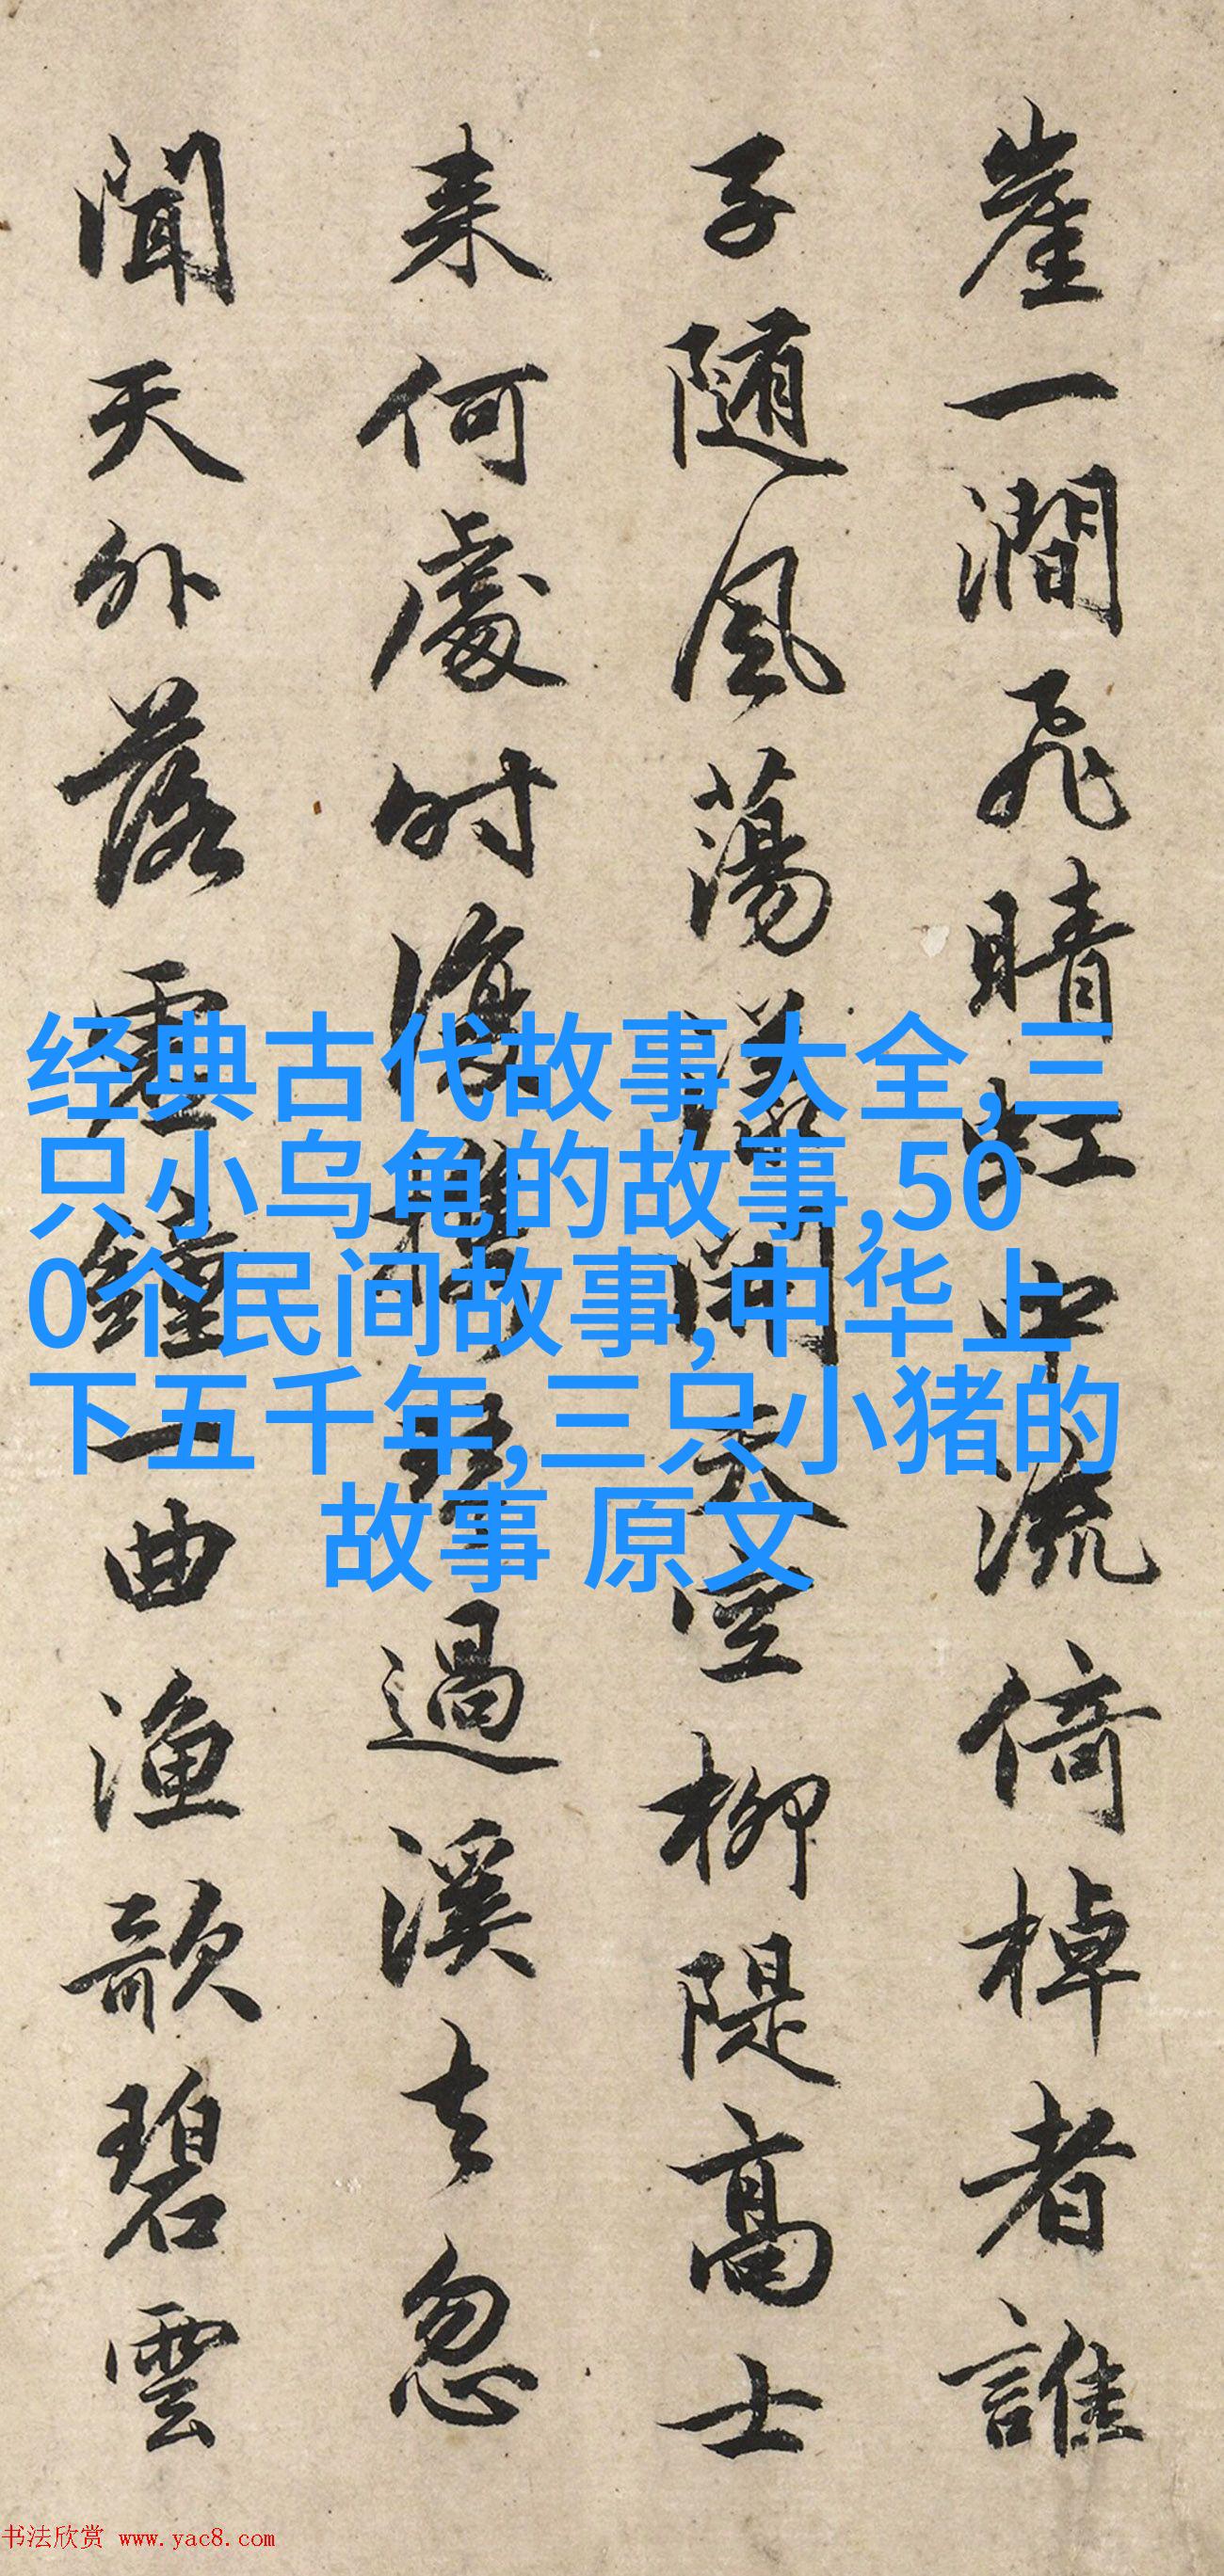 崖一澗飛晴虹中流倚棹者誰
子随風蕩漾開天空柳隄高士
来何處時復携琴過溪去忽
聞天外落鐘一曲漁歌碧雲
经典古代故事大全,三
只小乌龟的故事,50
0个民间故事,中华上
下五千年,三只小猪的
故事 原文
书法欣赏 www.yac8.com